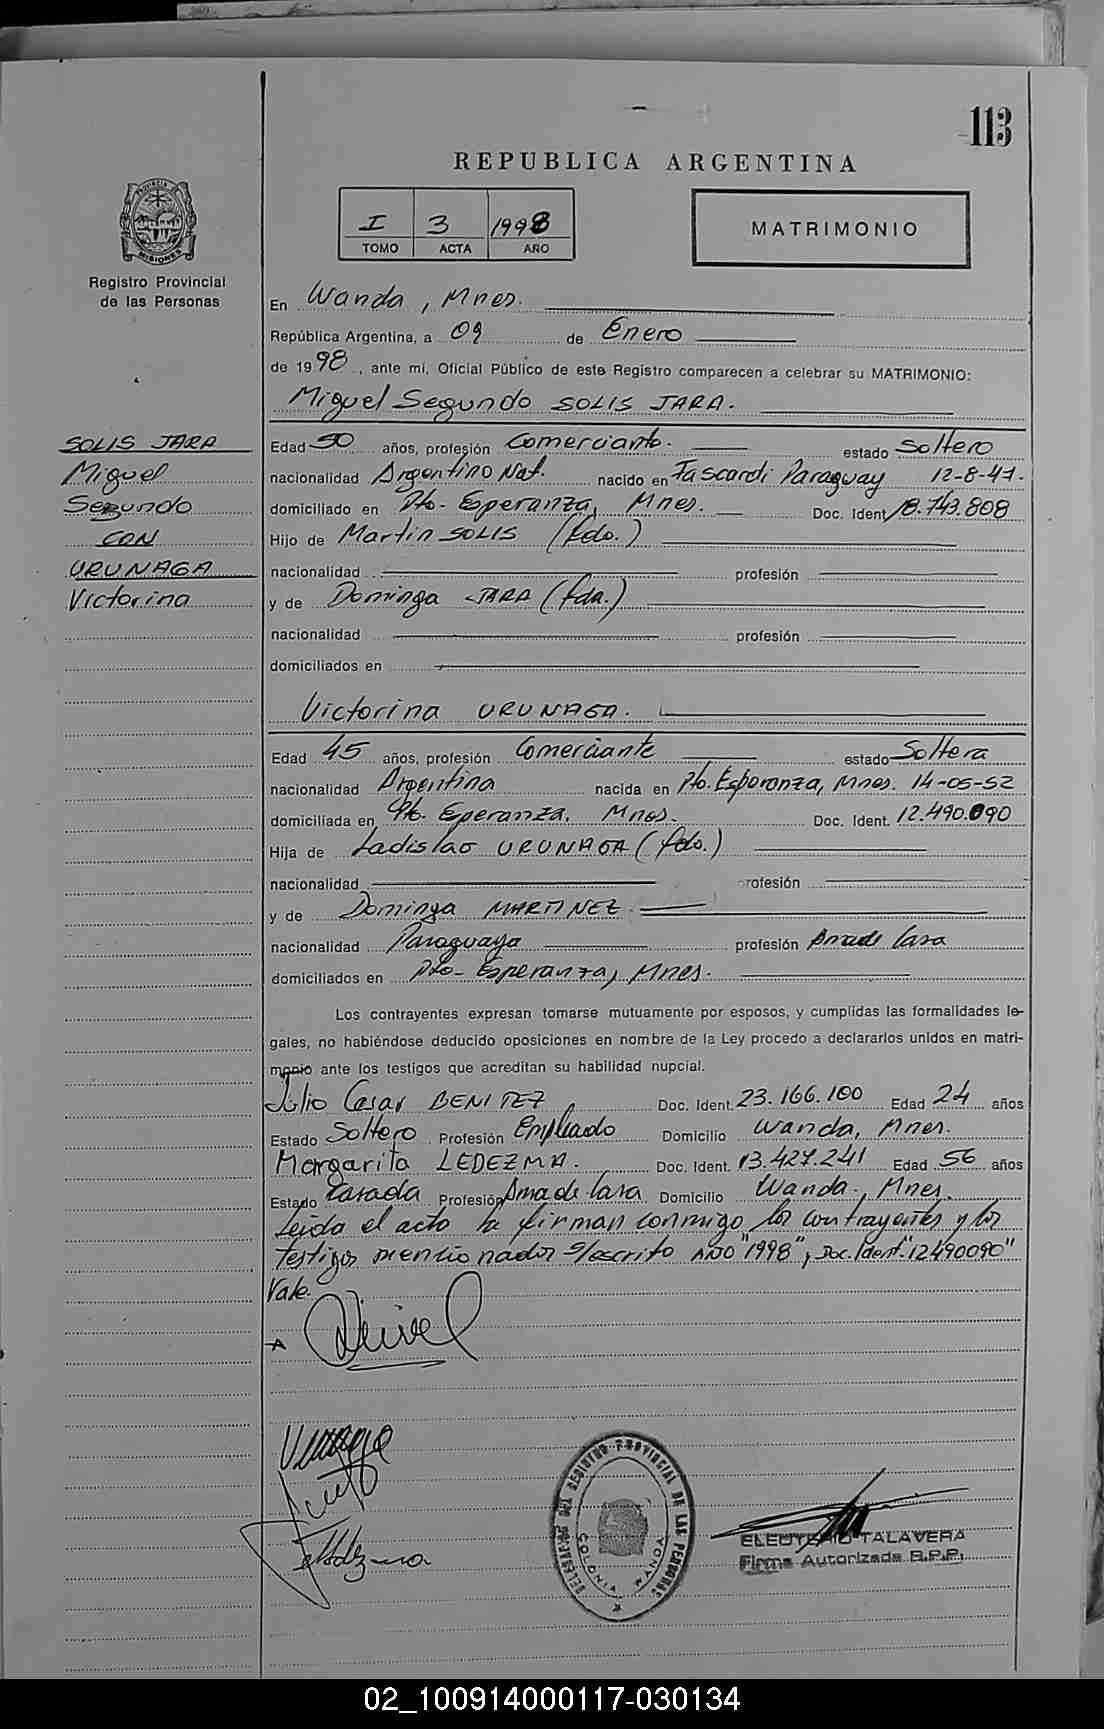 113
REPUBLICA ARGENTINA
PROVINCIA DE
MISIONES
Registro Provincial
de las Personas
I 3 1998
TOMO ACTA AÑO
MATRIMONIO
En Wanda, Mnes.
República Argentina, a 09 de Enero
de 1998, ante mi, Oficial Público de este Registro comparecen a celebrar su MATRIMONIO:
Miguel Segundo SOLIS JARA.
SOLIS JARA
Miguel
Segundo
CON
URUNAGA
Victorina
Edad 50 años, profesión Comerciante. estado Soltero
nacionalidad Argentino Nat. nacido en Paraguay 12-8-47.
domiciliado en Pto. Esperanza, Mnes. Doc. Ident. 18.743.808
Hijo de Martin SOLIS (fdo.)
nacionalidad profesión
y de Dominga JARA (fda.)
nacionalidad profesión
domiciliados en
Victorina URUNAGA.
Edad 45 años, profesión Comerciante estado Soltera
nacionalidad Argentina nacida en Pto. Esperanza, Mnes. 14-05-52
domiciliada en Pto. Esperanza, Mnes. Doc. Ident. 12.490.090
Hija de Ladislao URUNAGA (fdo.)
nacionalidad profesión
y de Dominga MARTINEZ
nacionalidad Paraguaya profesión Ama de Casa
domiciliados en Pto- Esperanza, Mnes.
Los contrayentes expresan tomarse mutuamente por esposos, y cumplidas las formalidades le-
gales, no habiéndose deducido oposiciones en nombre de la Ley procedo a declararlos unidos en matri-
monio ante los testigos que acreditan su habilidad nupcial.
Julio Cesar BENITEZ Doc. Ident. 23.166.100 Edad 24 años
Estado Soltero Profesión Empleado Domicilio Wanda, Mnes.
Margarita LEDEZMA. Doc. Ident. 13.427.241 Edad 56 años
Estado Casada Profesión Ama de Casa Domicilio Wanda, Mnes.
Leida el acta la firman conmigo los contrayentes y los
testigos mencionados S/escrito AÑO "1998", Doc. Ident. "12490090"
Vale.
DELEGACION DEL REGISTRO PROVINCIAL DE LAS PERSONAS
COLONIA WANDA
ELEUTERIO TALAVERA
Firma Autorizada R.P.P.
02_100914000117-030134